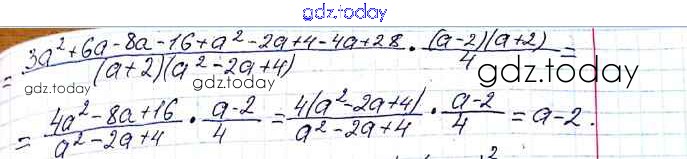 gdz.today
= (3a² + 6a - 8a - 16 + a² - 2a + 4 - 4a + 28) / ((a+2)(a² - 2a + 4)) · ((a-2)(a+2)) / 4 =
gdz.today gdz.today gdz.today
= (4a² - 8a + 16) / (a² - 2a + 4) · (a-2) / 4 = (4(a² - 2a + 4)) / (a² - 2a + 4) · (a-2) / 4 = a - 2.